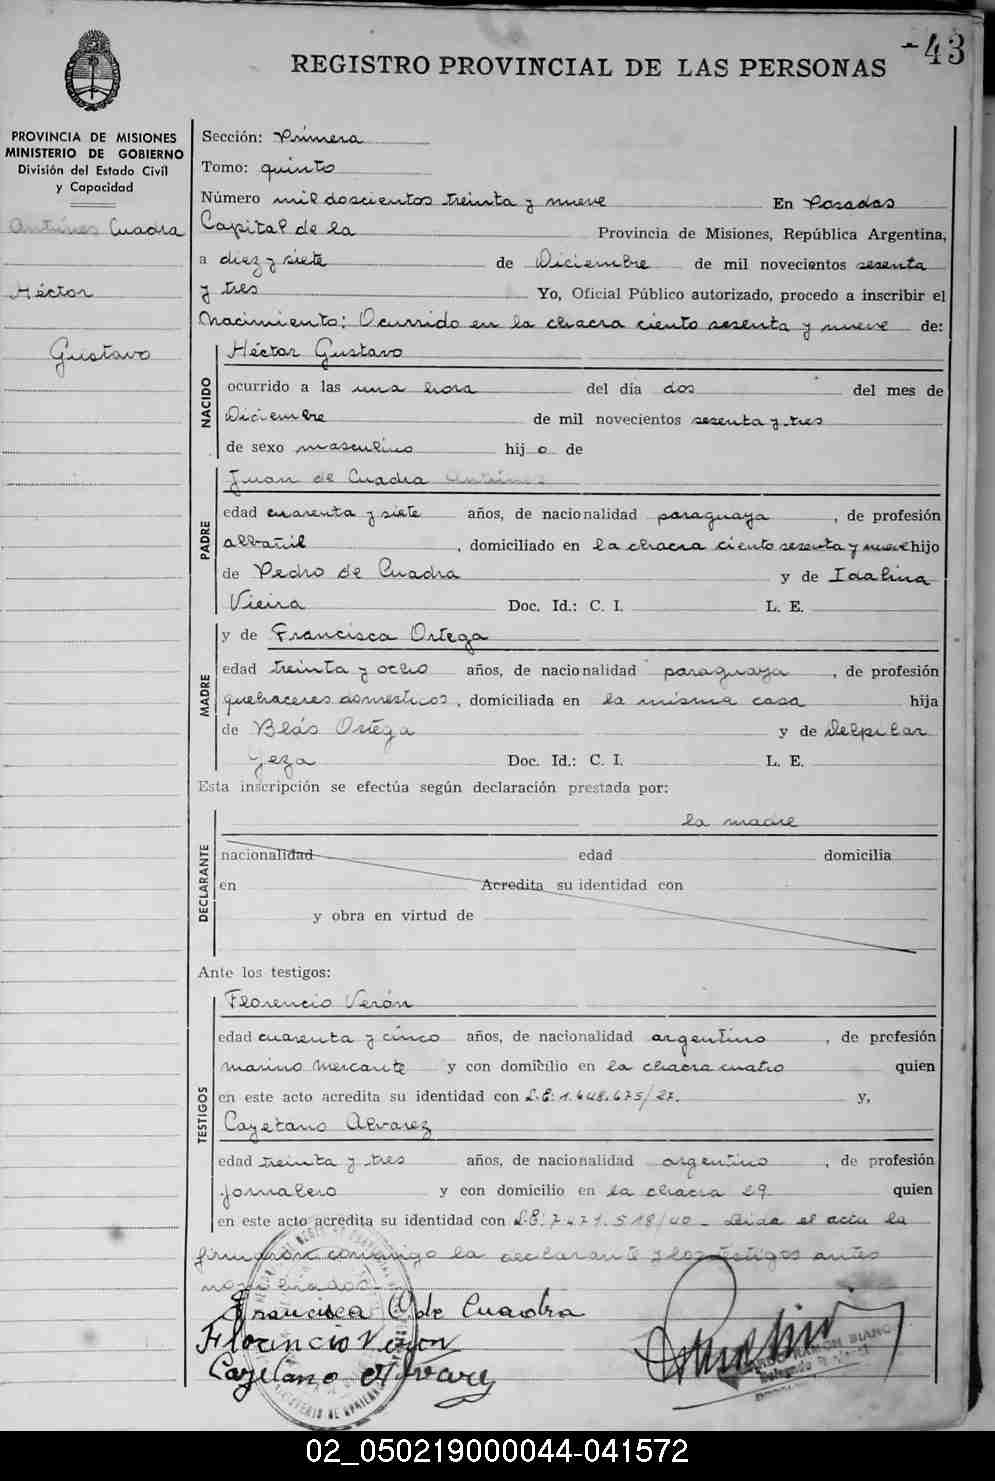 -43
REGISTRO PROVINCIAL DE LAS PERSONAS
PROVINCIA DE MISIONES
MINISTERIO DE GOBIERNO
División del Estado Civil
y Capacidad
Antúnes Cuadra
Héctor
Gustavo
Sección: Primera
Tomo: quinto
Número mil doscientos treinta y nueve En Posadas
Capital de la Provincia de Misiones, República Argentina,
a diez y siete de Diciembre de mil novecientos sesenta
y tres Yo, Oficial Público autorizado, procedo a inscribir el
Nacimiento: Ocurrido en la chacra ciento sesenta y nueve de:
NACIDO
Héctor Gustavo
ocurrido a las una hora del día dos del mes de
Diciembre de mil novecientos sesenta y tres
de sexo masculino hij o de
PADRE
Juan de Cuadra Antúnes
edad cuarenta y siete años, de nacionalidad paraguaya, de profesión
albañil, domiciliado en la chacra ciento sesenta y nueve hijo
de Pedro de Cuadra y de Idalina
Vieira Doc. Id.: C. I. L. E.
MADRE
y de Francisca Ortega
edad treinta y ocho años, de nacionalidad paraguaya, de profesión
quehaceres domésticos, domiciliada en la misma casa hija
de Blás Ortega y de Delpilar
Yeza Doc. Id.: C. I. L. E.
Esta inscripción se efectúa según declaración prestada por:
DECLARANTE
la madre
nacionalidad edad domicilia
en Acredita su identidad con
y obra en virtud de
Ante los testigos:
TESTIGOS
Florencio Verón
edad cuarenta y cinco años, de nacionalidad argentino, de profesión
marino mercante y con domicilio en la chacra cuatro quien
en este acto acredita su identidad con L.E: 1.648.675/27. y,
Cayetano Alvarez
edad treinta y tres años, de nacionalidad argentino, de profesión
jornalero y con domicilio en la chacra 29 quien
en este acto acredita su identidad con L.E: 7.471.518/40 - Leida el acta la
firmaron conmigo la declarante y los testigos antes
nombrados
Francisca O de Cuadra
Florencio Veron
Cayetano Alvarez
RAMON BIANC
Delegado
02_050219000044-041572